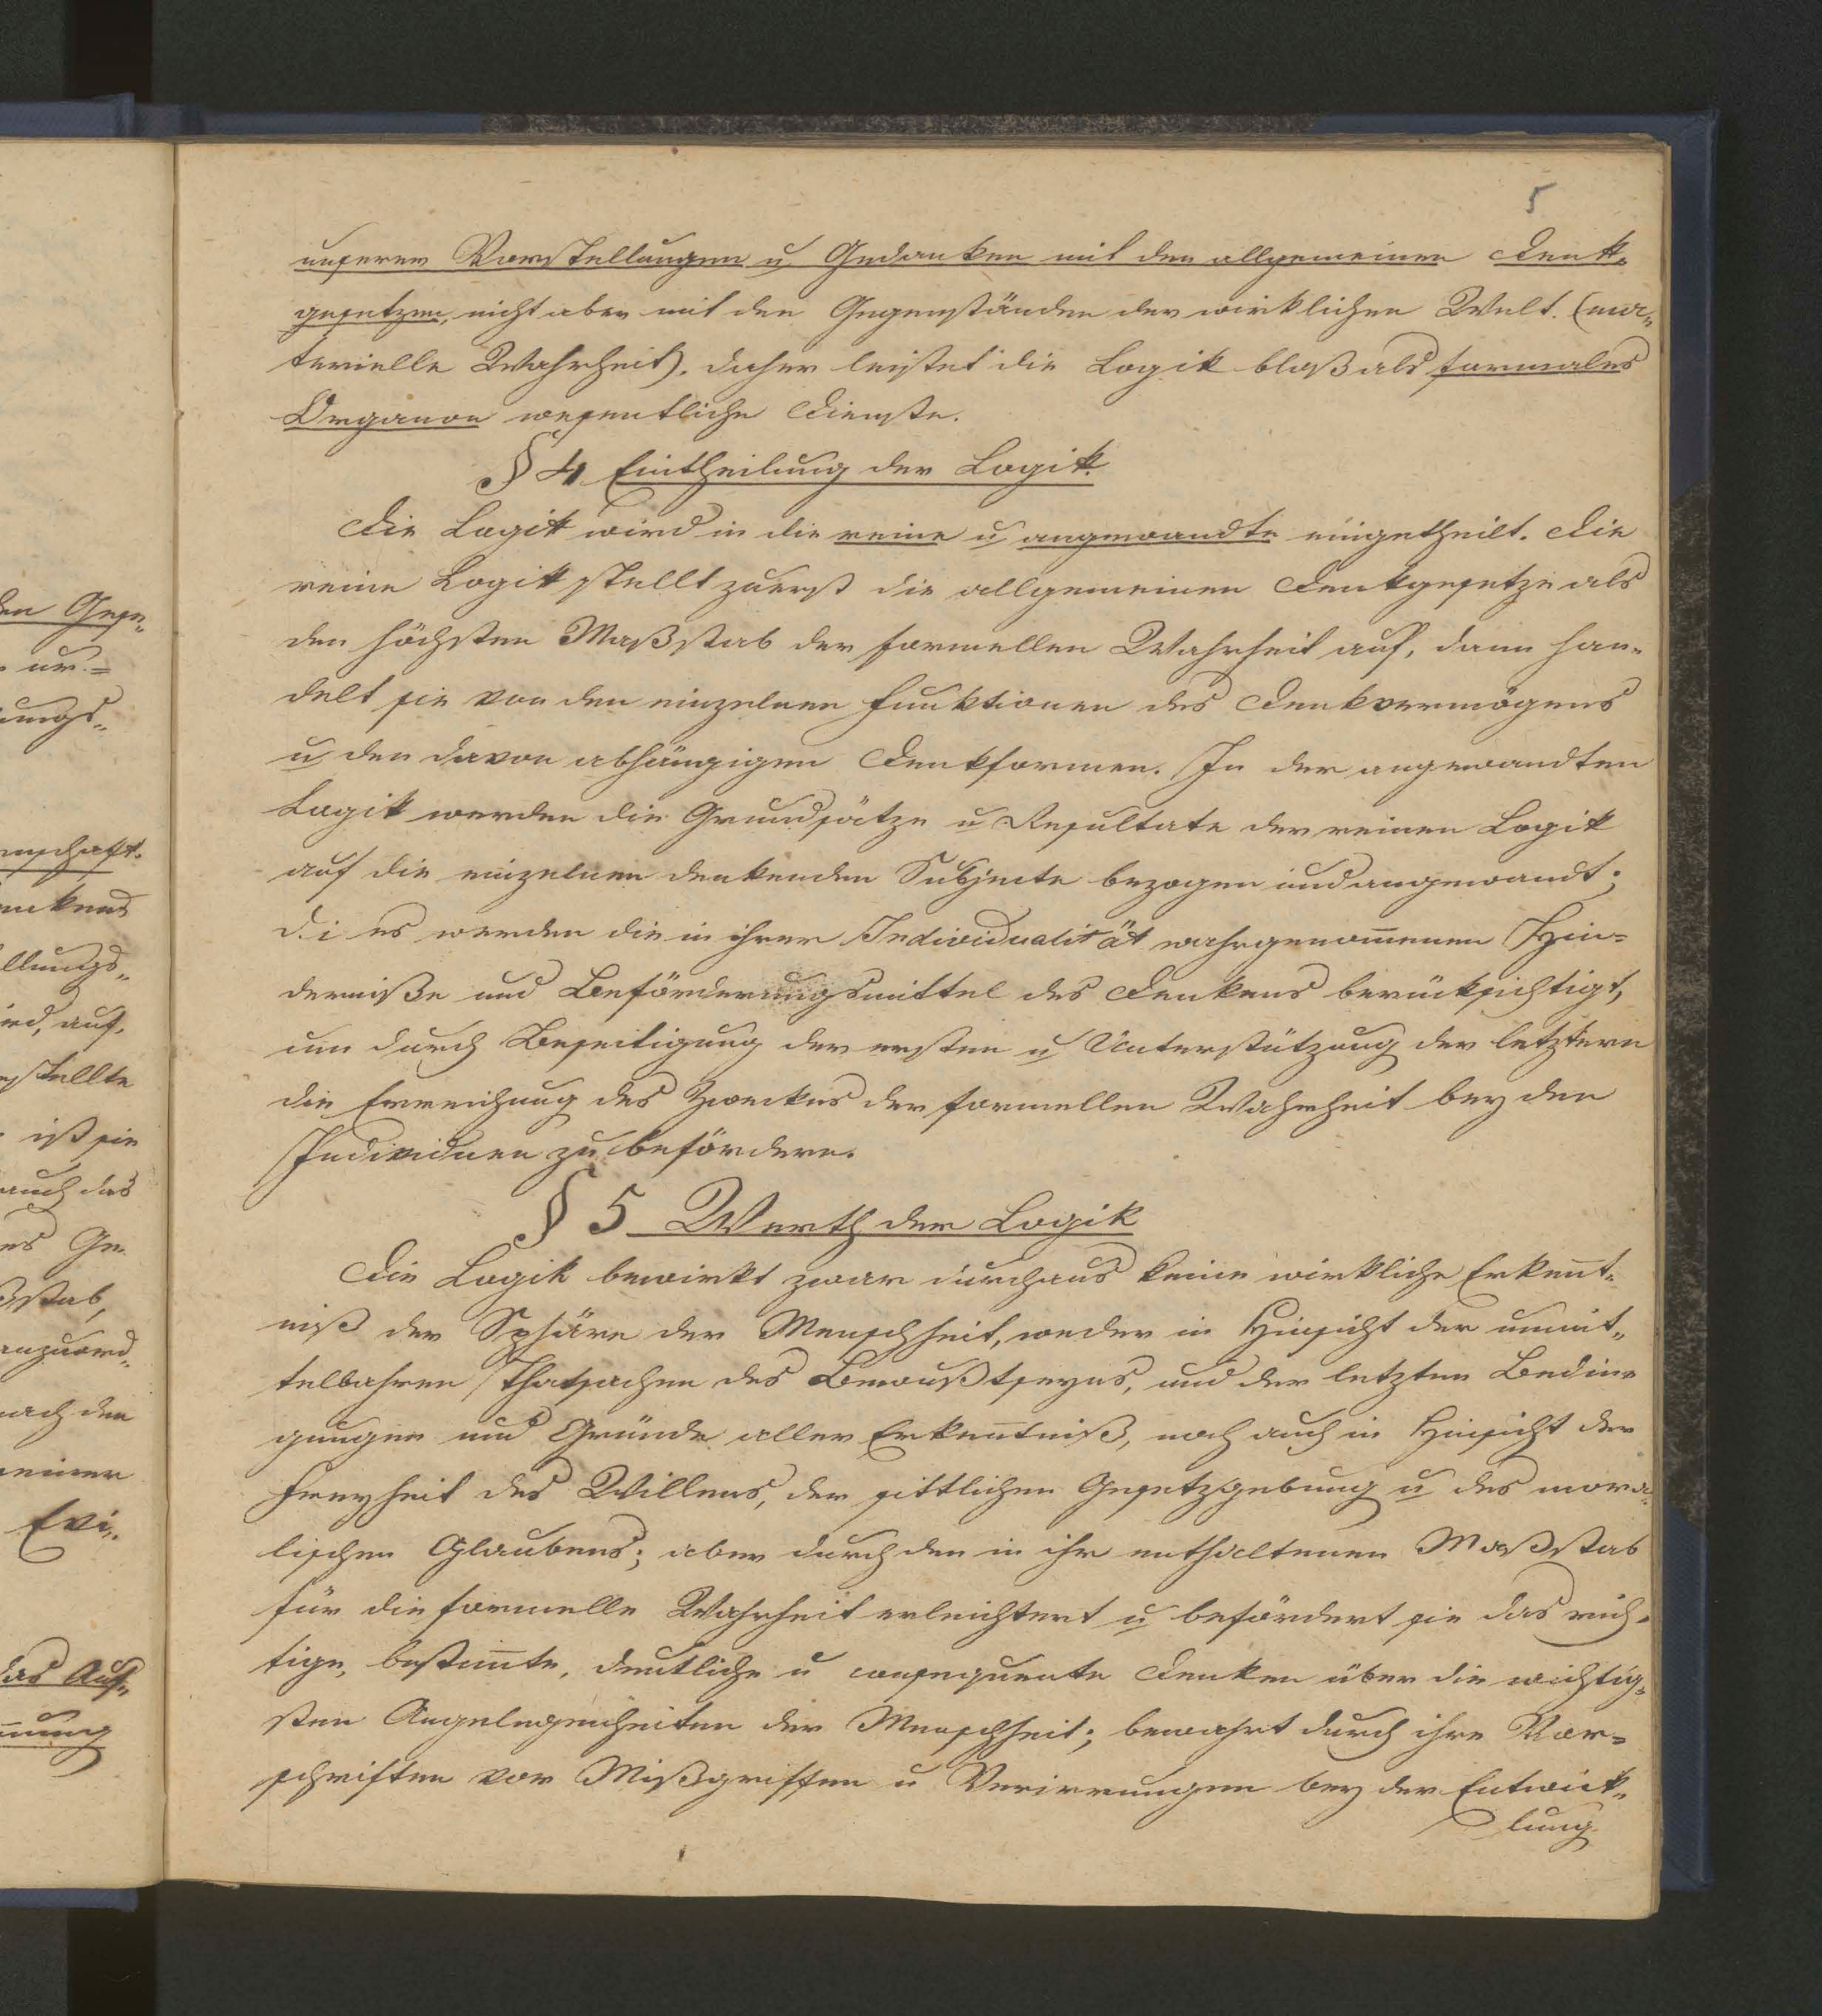 5
unserer Vorstellungen u Gedanken mit den allgemeinen Denk-
gesetzen, nicht aber mit den Gegenständen der wirklichen Welt. (ma-
terielle Wahrheit). Daher leistet die Logik bloß als formales
Organon wesentliche Dienste.
§ 4 Eintheilung der Logik.
Die Logik wird in die reine u angewandte eingetheilt. Die
reine Logik stellt zuerst die allgemeinen Denkgesetze als
den höchsten Maßstab der formellen Wahrheit auf, dann han-
delt sie von den einzelnen Funktionen des Denkvermögens
u den davon abhängigen Denkformen. In der angewandten
Logik werden die Grundsätze u Resultate der reinen Logik
auf die einzelnen denkenden Subjecte bezogen und angewandt;
d. i es werden die in ihrer Individualität wahrgenom̅enen Hin-
derniße und Beförderungsmittel des Denkens berücksichtigt,
um durch Beseitigung der ersten u Unterstützung der letztern
die Erreichung des Zweckes der formellen Wahrheit bey den
Individuen zu befördern.
§ 5 Werth der Logik
Die Logik bewirkt zwar durchaus keine wirkliche Erken̅t-
niß der Sphäre der Menschheit, weder in Hinsicht der unmit-
telbahren Thatsachen des Bewußtseyns, und der letzten Bedin-
gungen und Gründe aller Erken̅tniß, noch auch in Hinsicht der
Freyheit des Willens, der sittlichen Gesetzgebung u des mora-
lischen Glaubens; aber durch den in ihr enthaltenen Maßstab
für die formelle Wahrheit erleichtert u befördert sie das rich-
tige, bestim̅te, deutliche u consequente Denken über die wichtig-
sten Angelegenheiten der Menschheit; bewahrt durch ihre Vor-
schriften vor Mißgriffen u Verirrungen bey der Entwick-
lung
den Gese-
ur-
ungs-
enschaft.
enkens
llungs-
ird, auf.
stellte
ist sie
auch das
es Ge-
ßstab,
anzuord-
nach den
einer
Evi-
das Auf-
nung